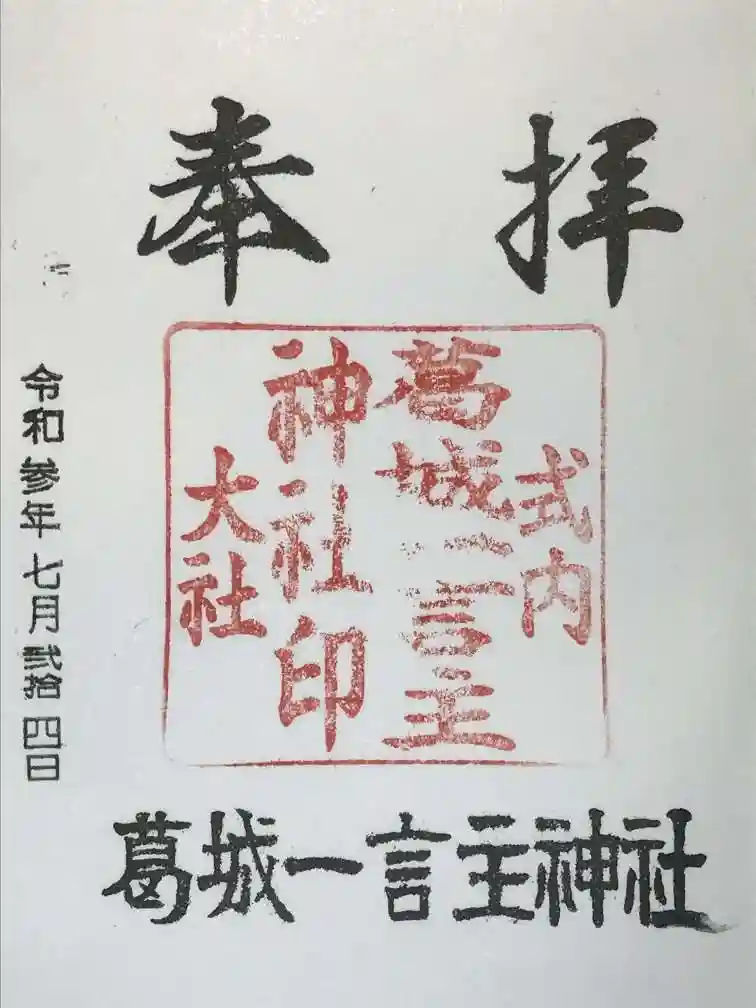 奉拝
式内
葛城一言主
神社印
大社
令和参年七月弐拾四日
葛城一言主神社